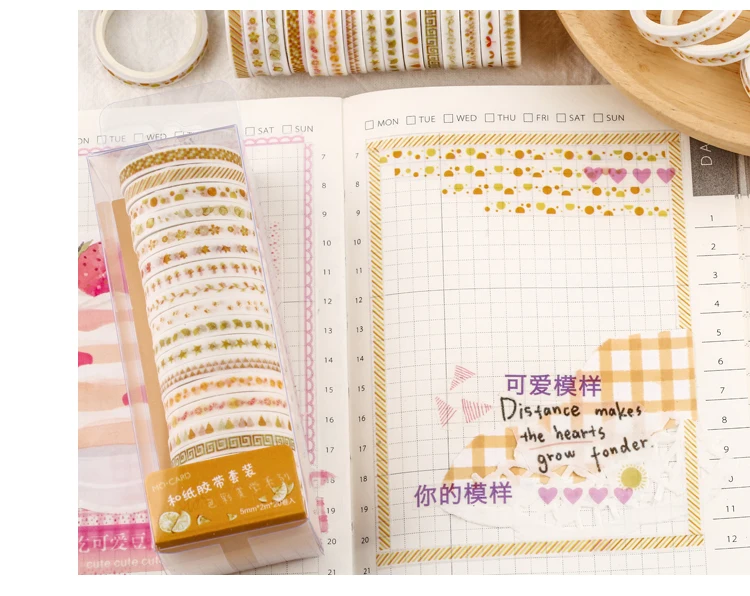 TUE
WED
SAT
SUN
MON
TUE
WED
THU
FRI
SAT
SUN
7
8
9
10
11
12
13
14
15
16
17
18
19
20
21
7
8
9
10
11
12
13
14
15
16
17
18
19
20
21
DA
1
2
3
4
5
6
7
8
9
10
11
12
可爱模样
Distance makes
the hearts
grow fonder.
你的模样
CARD
和纸胶带套装
5mm*2m*20卷入
可爱
cute cute cute